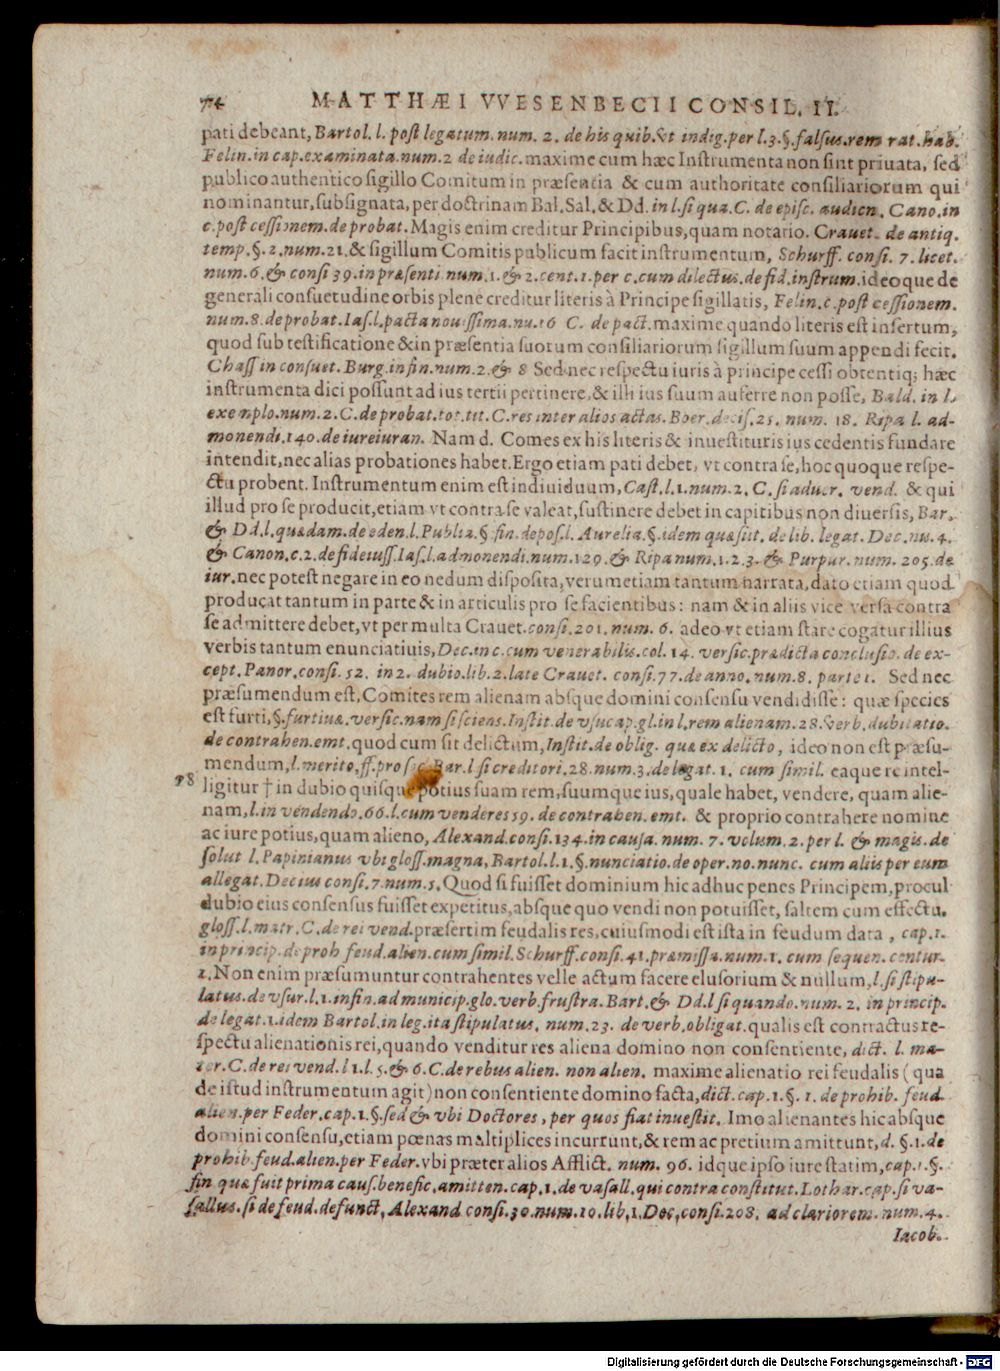 74 MATTHÆI VVESENBECII CONSIL. II.
pati debeant, Bartol. l. post legatum. num. 2. de his quib. &t indig. per l. 3. §. falsus. rem rat. hab.
Felin. in cap. examinata. num. 2 de iudic. maxime cum hæc Instrumenta non sint priuata, sed
publico authentico sigillo Comitum in præsentia & cum authoritate consiliariorum qui
nominantur, subsignata, per doctrinam Bal. Sal. & Dd. in l. si qua. C. de episc. audien. Cano. in
c. post cessionem. de probat. Magis enim creditur Principibus, quam notario. Crauet. de antiq.
temp. §. 2. num. 21. & sigillum Comitis publicum facit instrumentum, Schurff. consi. 7. licet.
num. 6. & consi 39. in præsenti. num. 1. & 2. cent. 1. per c. cum dilectus. de fid. instrum. ideoque de
generali consuetudine orbis plene creditur literis à Principe sigillatis, Felin. c. post cessionem.
num. 8. de probat. Ias. l. pacta nouissima. nu. 16 C. de pact. maxime quando literis est insertum,
quod sub testificatione & in præsentia suorum consiliariorum sigillum suum appendi fecit.
Chass in consuet. Burg. in fin. num. 2. & 8 Sed nec respectu iuris à principe cessi obtentiq; hæc
instrumenta dici possunt ad ius tertii pertinere, & illi ius suum auferre non posse, Bald. in l.
exemplo. num. 2. C. de probat. tot. tit. C. res inter alios actas. Boer. decis. 25. num. 18. Ripa l. ad-
monendi. 140. de iureiuran. Nam d. Comes ex his literis & inuestituris ius cedentis fundare
intendit, nec alias probationes habet. Ergo etiam pati debet, vt contra se, hoc quoque respe-
ctu probent. Instrumentum enim est indiuiduum, Cast. l. 1. num. 2. C. si aduer. vend. & qui
illud pro se producit, etiam vt contra se valeat, sustinere debet in capitibus non diuersis, Bar.
& Dd. l. quædam. de eden. l. Publia. § fin. depos. l. Aurelia. § idem quæsiit. de lib. legat. Dec. nu. 4.
& Canon. c. 2. de fideiuss. Ias. l. admonendi. num. 129. & Ripa num. 1. 2. 3. & Purpur. num. 205. de
iur. nec potest negare in eo nedum disposita, verumetiam tantum narrata, dato etiam quod
producat tantum in parte & in articulis pro se facientibus: nam & in aliis vice versa contra
se admittere debet, vt per multa Crauet. consi. 201. num. 6. adeo vt etiam stare cogatur illius
verbis tantum enunciatiuis, Dec. in c. cum venerabilis. col. 14. versic. prædicta conclusio. de ex-
cept. Panor. consi. 52. in 2. dubio. lib. 2. late Crauet. consi. 77. de anno. num. 8. parte 1. Sed nec
præsumendum est, Comites rem alienam absque domini consensu vendidisse: quæ species
est furti, §. furtiuæ. versic. nam si sciens. Instit. de vsucap. gl. in l. rem alienam. 28. verb. dubitatio.
de contrahen. emt. quod cum sit delictum, Instit. de oblig. quæ ex delicto, ideo non est præsu-
mendum, l. merito, ff. pro soc. Bar. l si creditori. 28. num. 3. de legat. 1. cum simil. eaque re intel-
78 ligitur † in dubio quisque potius suam rem, suumque ius, quale habet, vendere, quam alie-
nam, l. in vendendo. 66. l. cum venderes 59. de contrahen. emt. & proprio contrahere nomine
ac iure potius, quam alieno, Alexand. consi. 134. in causa. num. 7. volum. 2. per l. & magis. de
solut l. Papinianus vbi gloss. magna, Bartol. l. 1. §. nunciatio. de oper. no. nunc. cum aliis per eum
allegat. Decius consi. 7. num. 5. Quod si fuisset dominium hic adhuc penes Principem, procul
dubio eius consensus fuisset expetitus, absque quo vendi non potuisset, saltem cum effectu.
gloss. l. matr. C. de rei vend. præsertim feudalis res, cuiusmodi est ista in feudum data, cap. 1.
in princip. de proh feud. alien. cum simil. Schurff. consi. 41. præmissa. num. 1. cum sequen. centur.
1. Non enim præsumuntur contrahentes velle actum facere elusorium & nullum, l. si stipu-
latus. de vsur. l. 1. in fin. ad municip. glo. verb. frustra. Bart. & Dd. l si quando. num. 2. in princip.
de legat. 1. idem Bartol. in leg. ita stipulatus. num. 23. de verb. obligat. qualis est contractus re-
spectu alienationis rei, quando venditur res aliena domino non consentiente, dict. l. ma-
ter. C. de rei vend. l 1. l. 5. & 6. C. de rebus alien. non alien. maxime alienatio rei feudalis (qua
de istud instrumentum agit) non consentiente domino facta, dict. cap. 1. §. 1. de prohib. feud.
alien. per Feder. cap. 1. §. sed & vbi Doctores, per quos fiat inuestit. Imo alienantes hic absque
domini consensu, etiam pœnas multiplices incurrunt, & rem ac pretium amittunt, d. §. 1. de
prohib. feud. alien. per Feder. vbi præter alios Afflict. num. 96. idque ipso iure statim, cap. 1. §.
fin quæ fuit prima caus. benefic. amitten. cap. 1. de vasall. qui contra constitut. Lothar. cap. si va-
sallus. si de feud. defunct, Alexand consi. 30. num. 10. lib, 1. Dec, consi. 208. ad clariorem. num. 4.
Iacob.
Digitalisierung gefördert durch die Deutsche Forschungsgemeinschaft - DFG